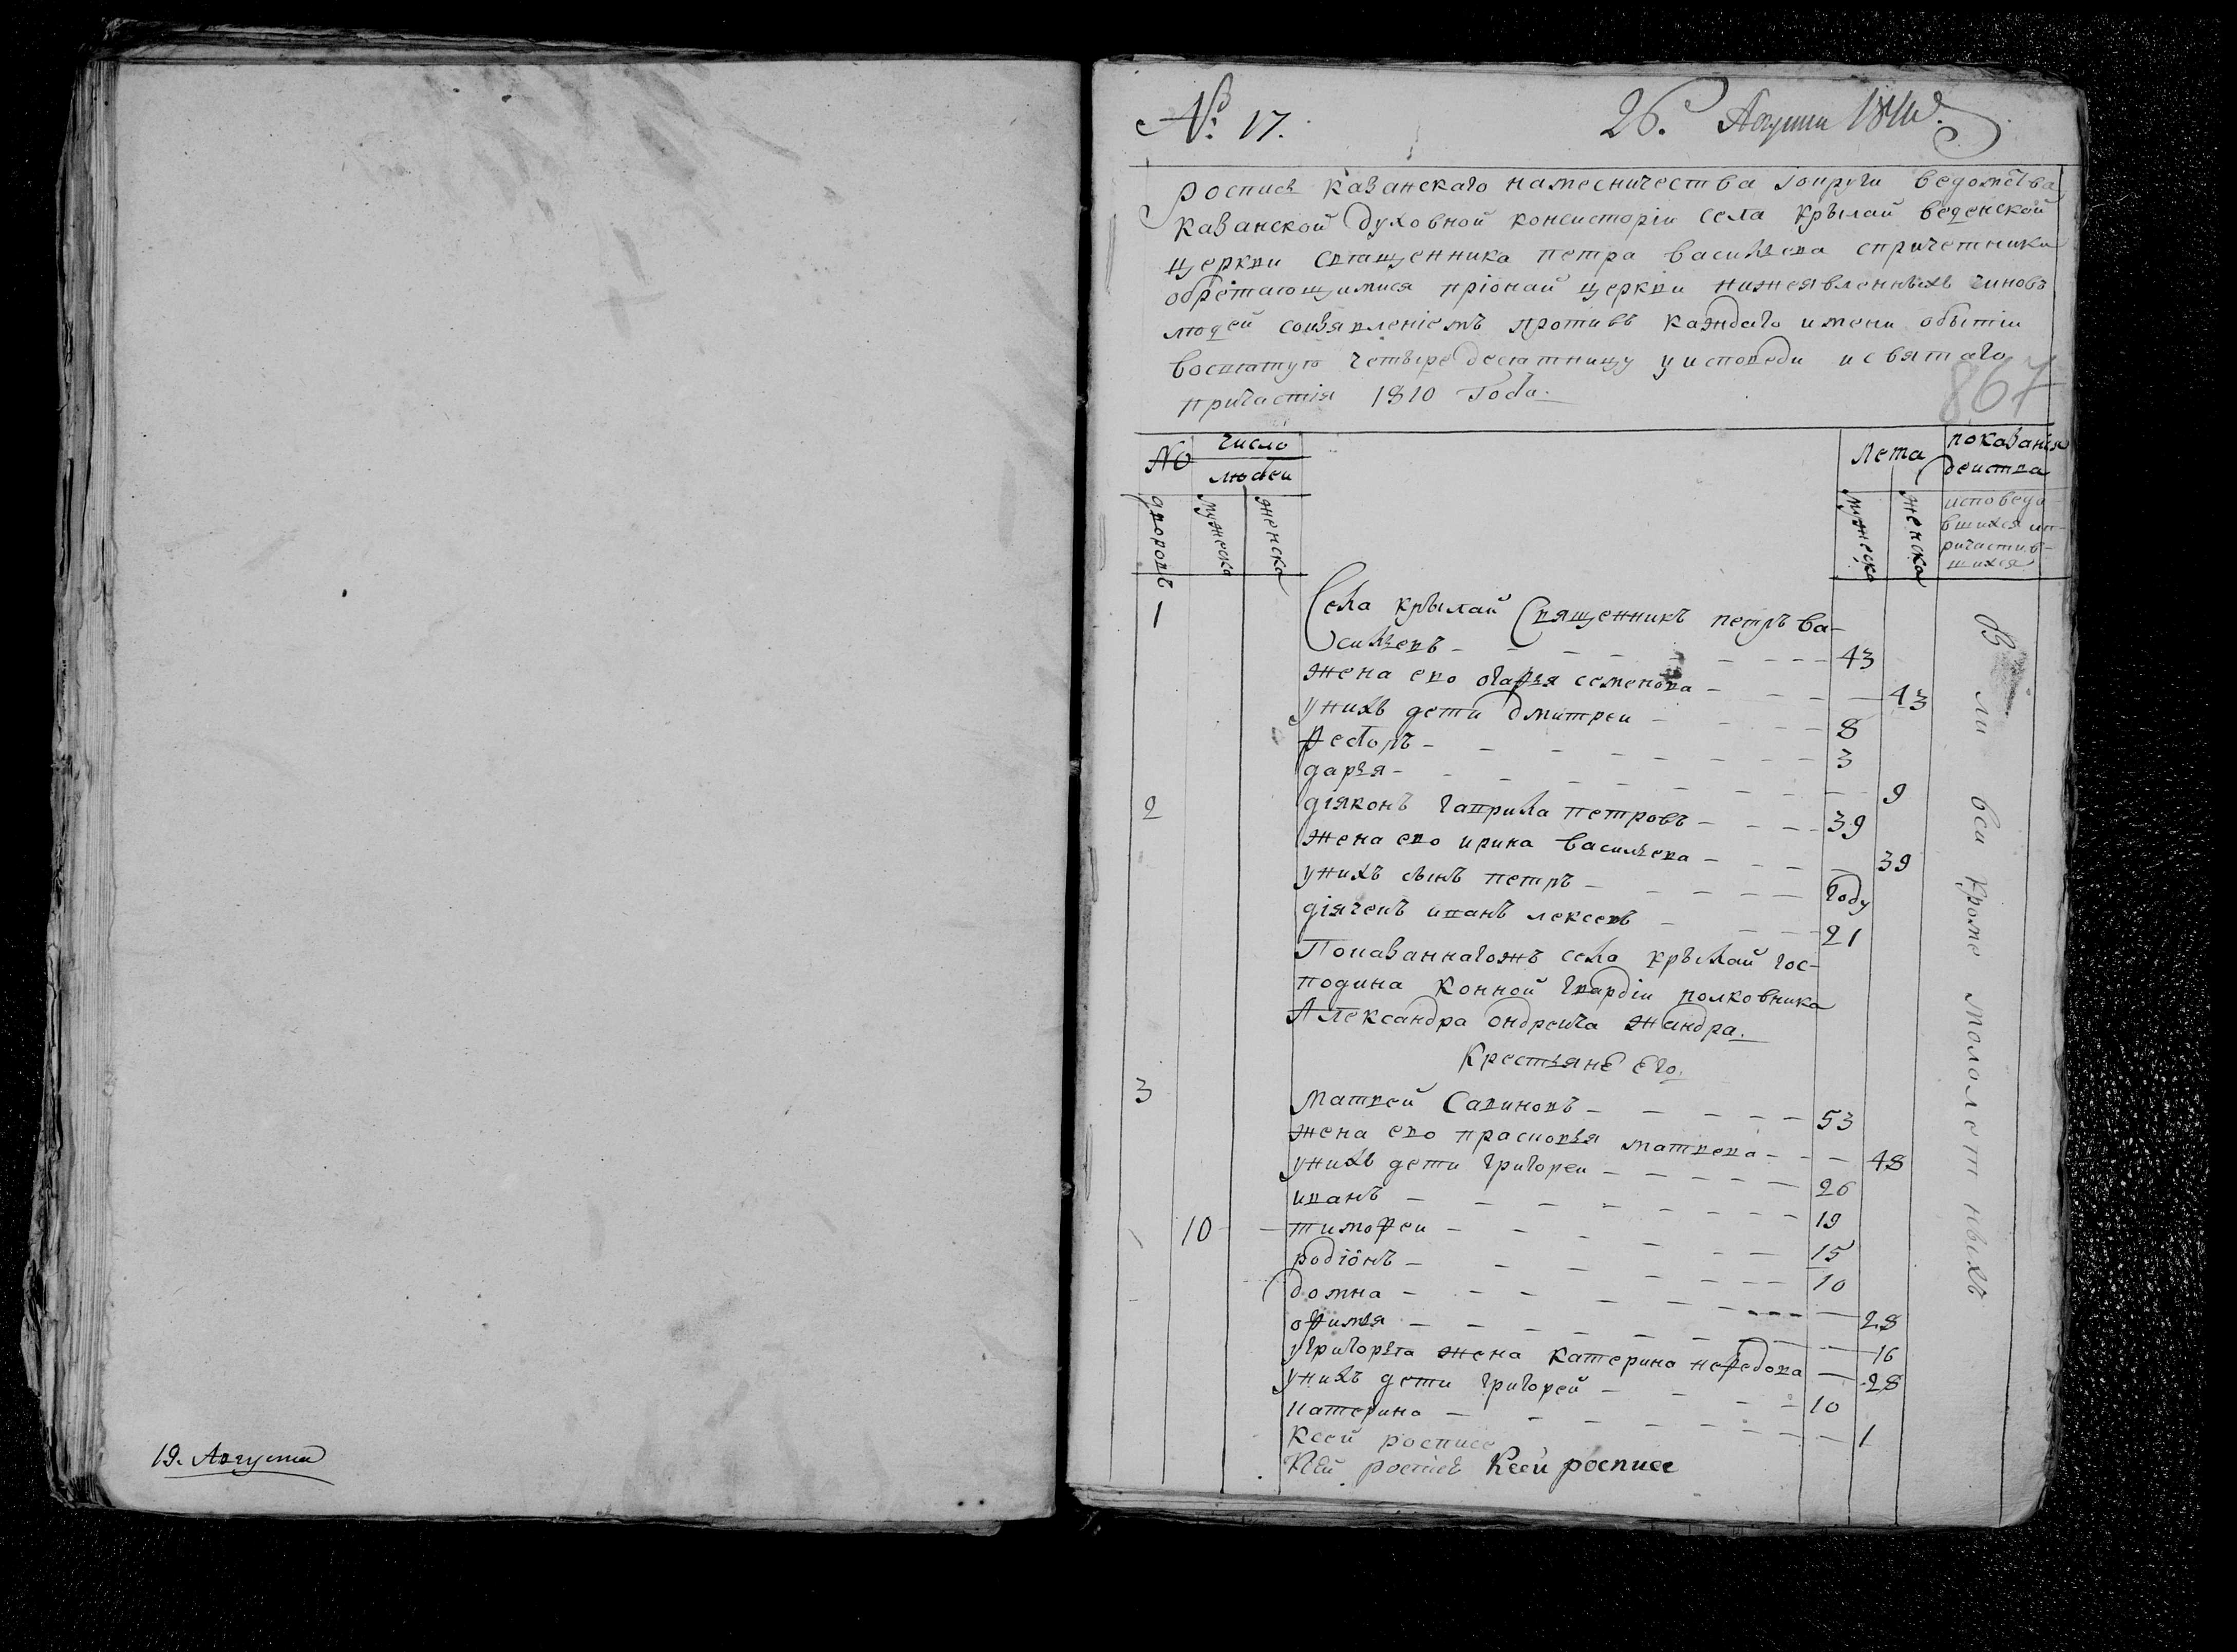 19. Августа
№ 17.
26. Августа 1810.
роспись казанскаго наместничества ведомства
казанской духовной консисторіи села крылай веденской
церкви священника петра васильева спричетники
обретающимися пріоной церкви нижеявленныхъ чиновъ
людей созявленіемъ противъ каждаго имени обытіи
восвятую четыредесятницу уисповеди исвятаго
причастія 1810 Года.
867
№
число
людей
Лета
показанія
деиства
дворовъ
мужеска
женска
мужеска
женска
исповеда-
вшихся ип-
ричастив-
шихся
1 Села крылай Священникъ петръ ва-
сильевъ 43
жена ево огафья семенова 43
унихъ дети дмитреи 8
федоръ 3
дарья 9
2 діяконъ гаврила петровъ 39
жена ево ирина васильева 39
унихъ сынъ петръ году
діячекъ иванъ лексеевъ 21
Поназваннагожъ села крылай гос-
подина конной гвардіи полковника
Александра ондреича жандра.
Крестьянѣ его.
3 Матвей Савиновъ 53
жена ево прасковья матвева 48
унихъ дети григореи 26
иванъ 19
10 тимофеи 15
родіонъ 10
домна 28
офимья 16
угригорья жена катерина нефедова 28
унихъ дети григорей 10
катерина 1
Ксей росписе
Ксей росписе Ксей росписе
вси кроме малолетныхъ